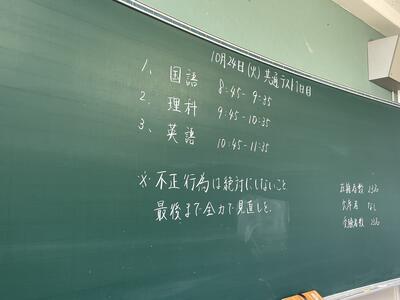 10月24日(火) 共通テスト1日目
1、国語 8:45-9:35
2、理科 9:45-10:35
3、英語 10:45-11:35
※不正行為は絶対にしないこと
最後まで全力で見直しを。
在籍者数
欠席者 なし
受験者数